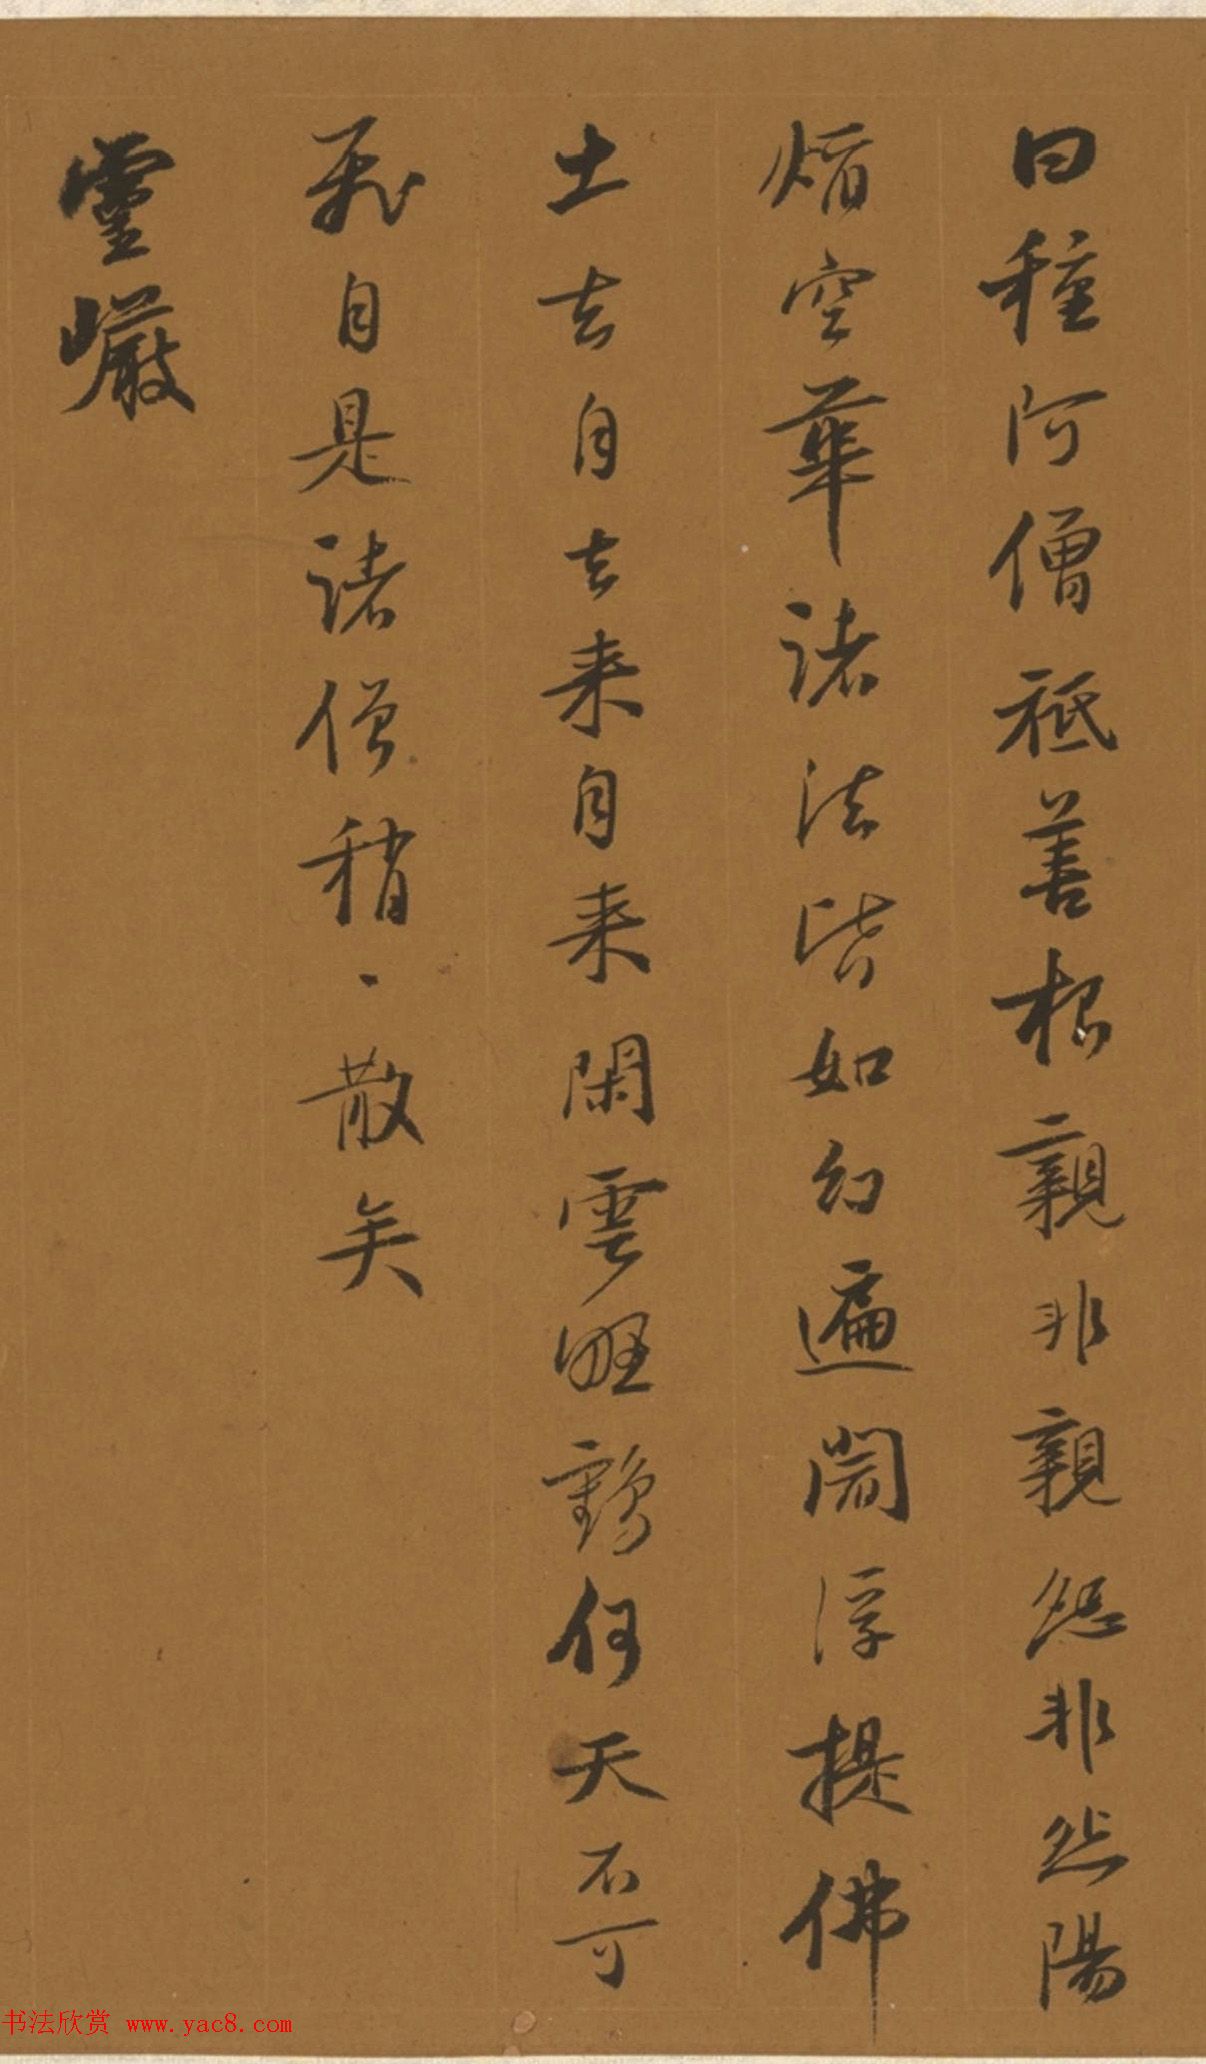 曰種阿僧祇善根親非親怨非怨陽
焰空華諸法皆如幻遍閻浮提佛
土去自去來自來閑雲野鶴何天不可
飛自是諸僧稍、散矣
靈巖
书法欣赏 www.yac8.com